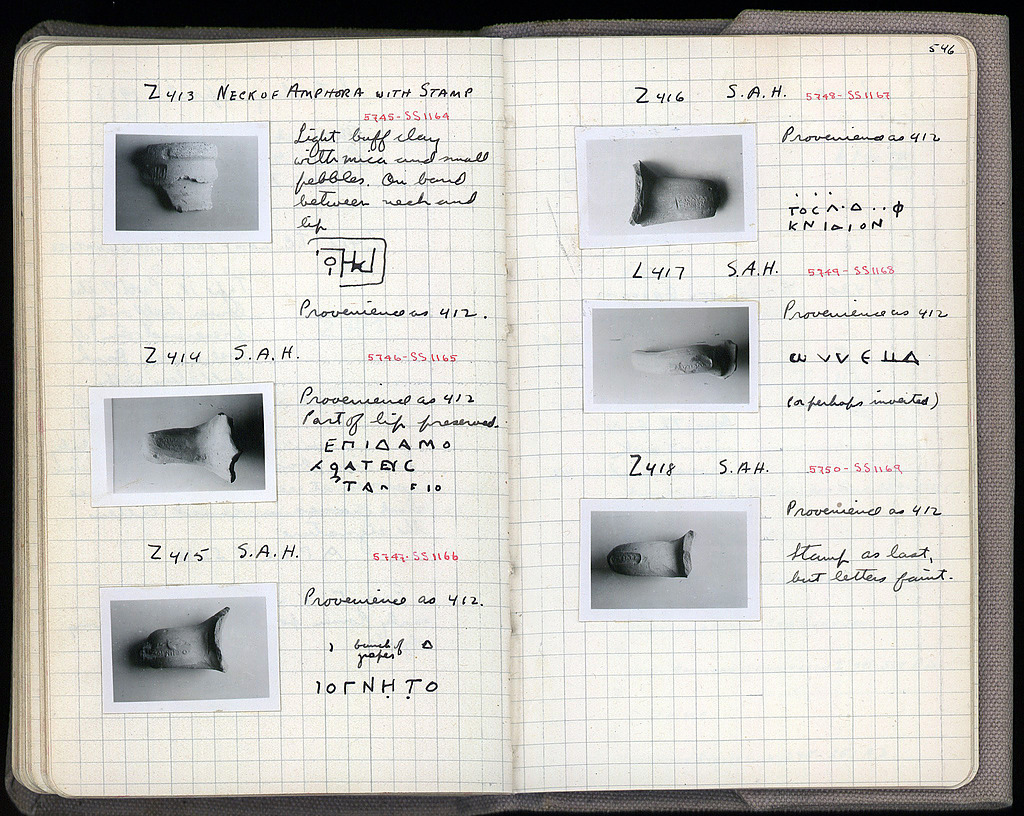 Z 413 NECK OF AMPHORA WITH STAMP
5745-SS1164
Light buff clay
with mica and small
pebbles. On band
between neck and
lip
Provenience as 412.
Z 414 S.A.H.
5746-SS1165
Provenience as 412
Part of lip preserved.
ΕΠΙΔΑΜΟ
ΚΡΑΤΕΥC
ΤΑΠ ΕΙΟ
Z 415 S.A.H.
5747-SS1166
Provenience as 412.
bunch of Δ
grapes
ΙΟΓΝΗΤΟ
546
Z 416 S.A.H. 5748-SS1167
Provenience as 412
ΤΟCΛ·Δ··Φ
ΚΝΙΔΙΟΝ
Z 417 S.A.H. 5749-SS1168
Provenience as 412
(or perhaps inverted)
Z 418 S.A.H. 5750-SS1169
Provenience as 412
Stamp as last,
but letters faint.